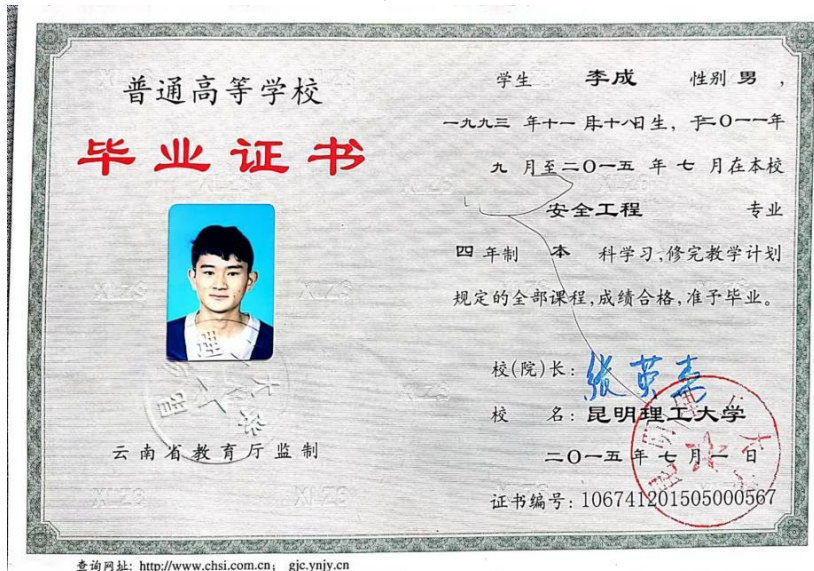 普通高等学校
毕业证书
云南省教育厅监制
学生 李成 性别 男 ,
一九九三 年十一月十八日生, 于二〇一一年
九 月至二〇一五 年 七 月在本校
安全工程 专业
四 年制 本 科学习,修完教学计划
规定的全部课程,成绩合格,准予毕业。
校(院)长: 张英杰
校 名: 昆明理工大学
二〇一五 年 七 月 一 日
证书编号: 106741201505000567
查询网址: http://www.chsi.com.cn; gjc.ynjy.cn